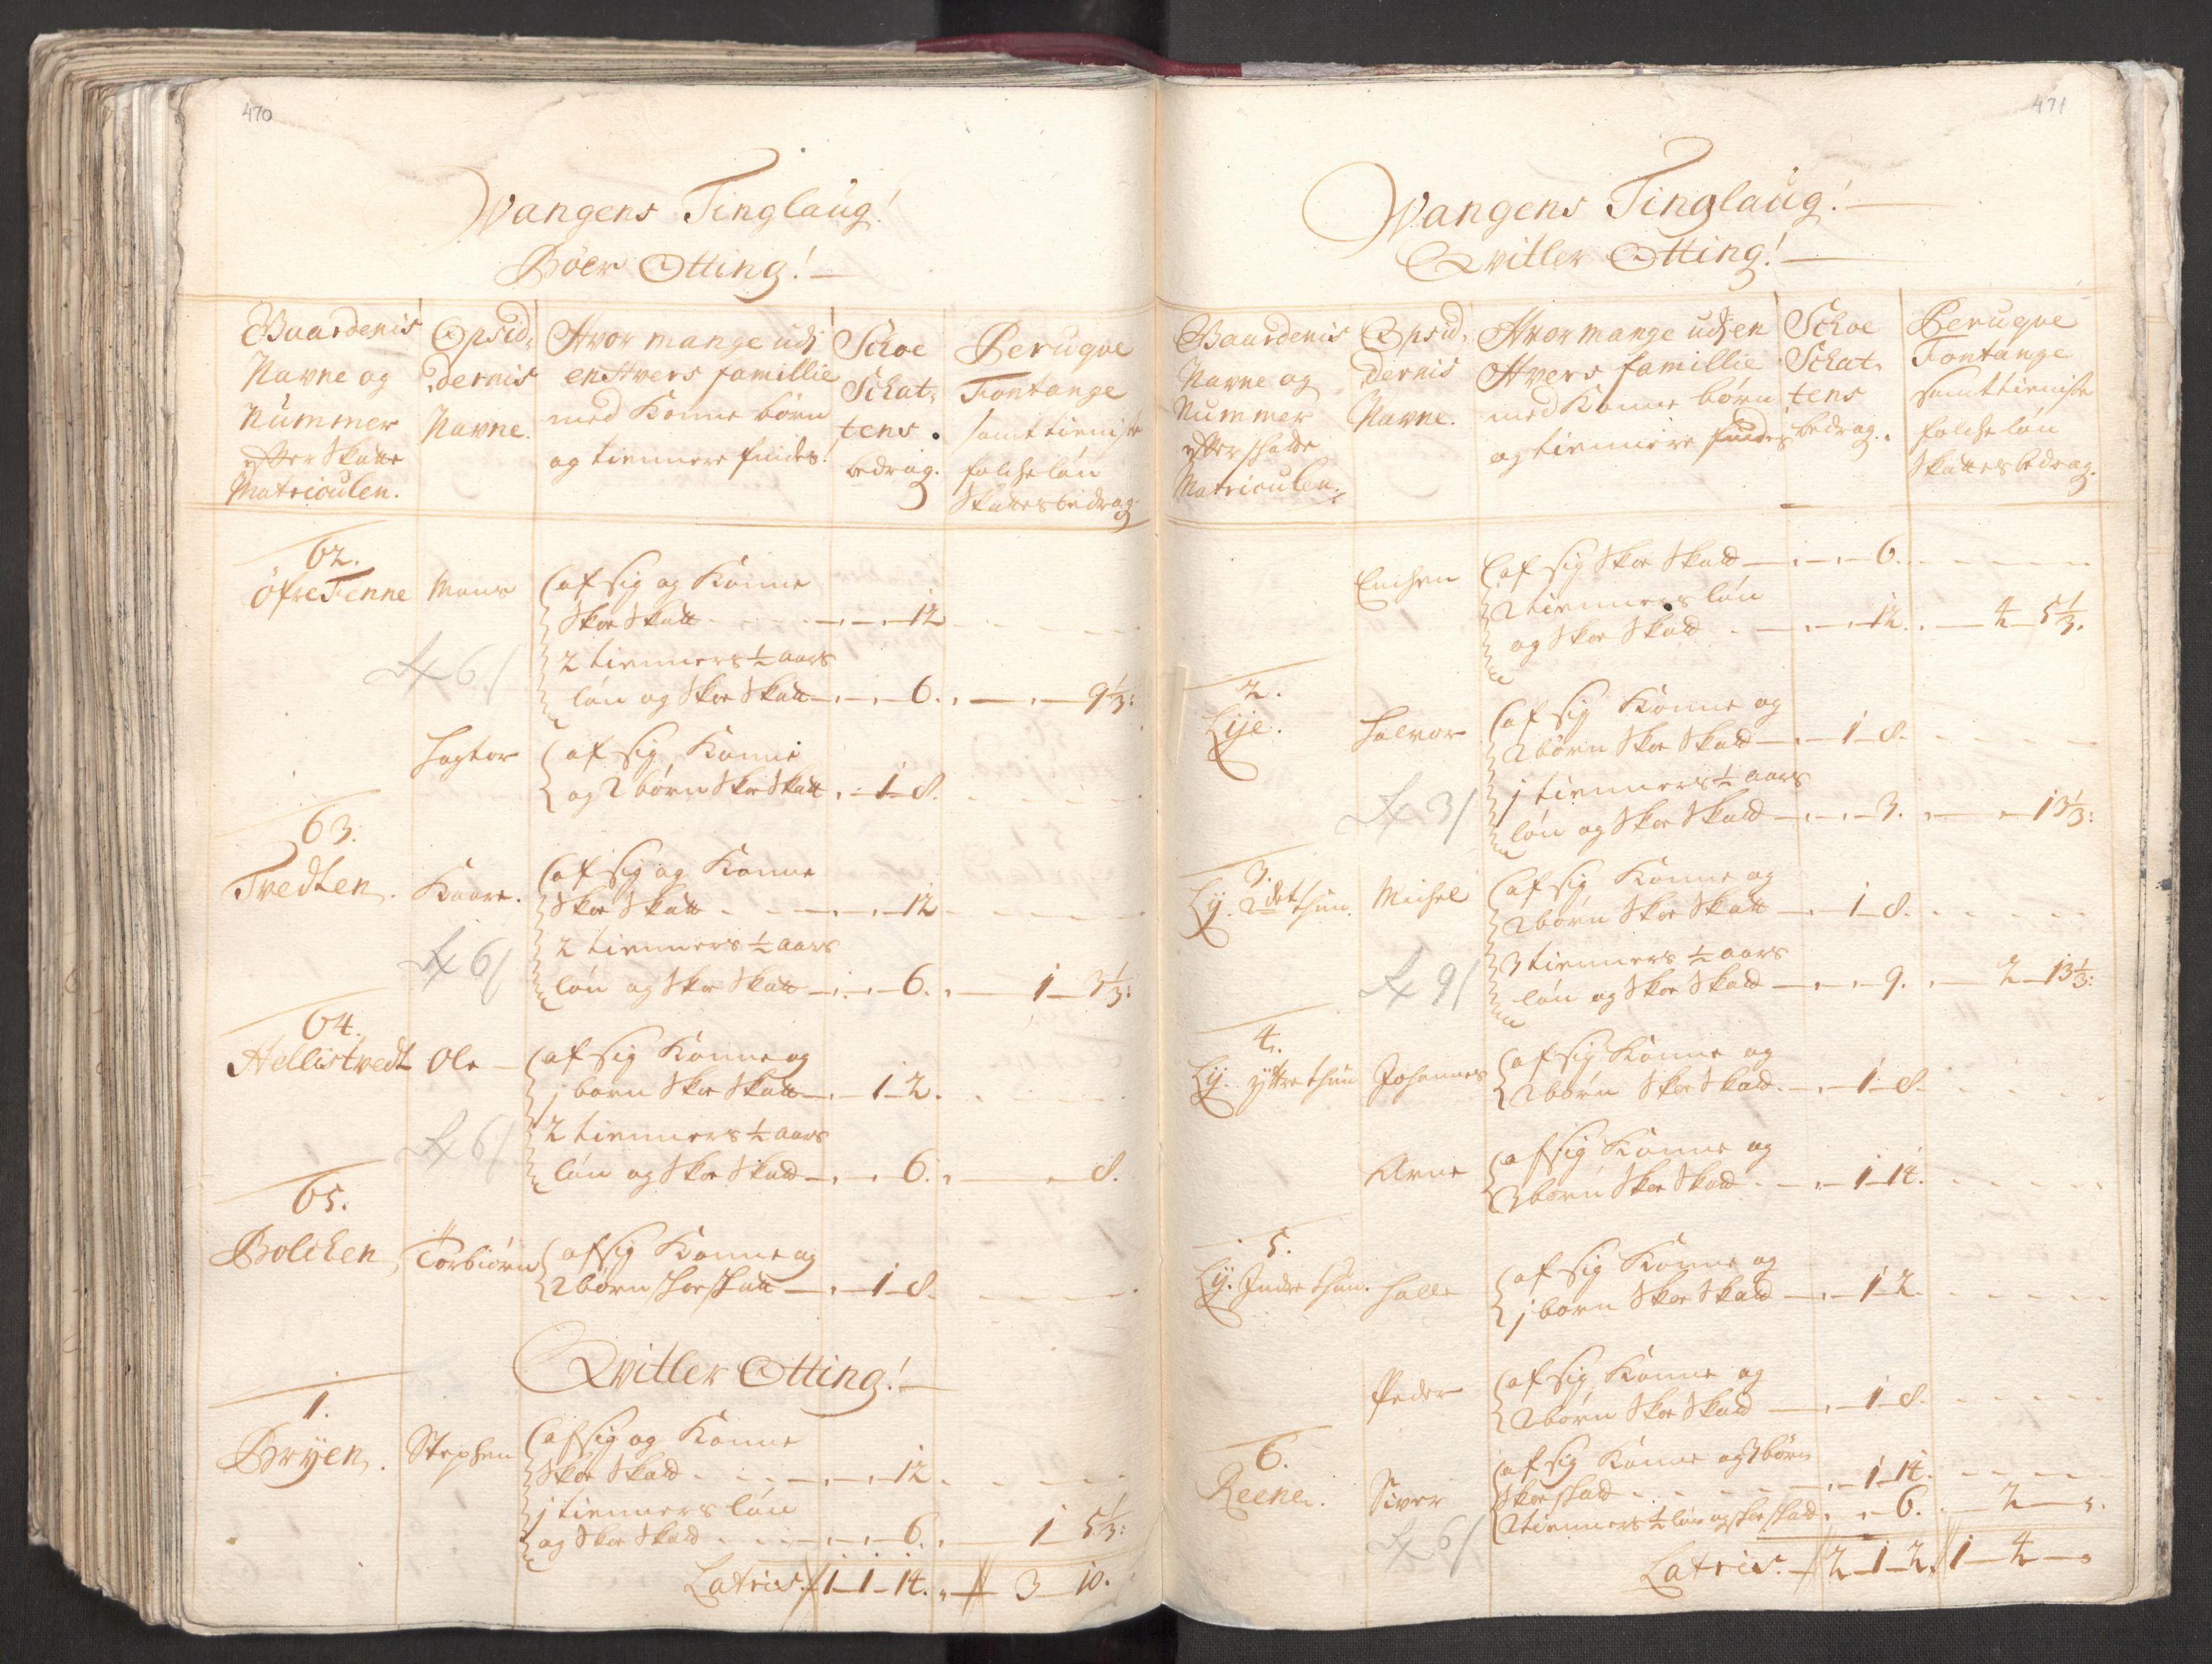 470
Wangens Tinglaug!
Böer Otting!
Gaardenis
Navne og
Nummer
efter Skatte
Matriculen.
Opsid-
dernis
Navne.
Hvor mange udj
en Hvers famillie
med Konne börn
og tiennere findes.
Schoe
Schat-
tens
bedrag.
Peruqve
Fontange
samt tieniste
folche lön
Skattes bedrag.
62.
öfre Tenne Mons (af sig og Konne
Skoe Skatt - - - 12
2 tienners ½ aars
lön og Skoe Skatt - - 6. - - 9⅓:
X 6/
Hagtor (af sig Konne
og 2 börn Skoe Skatt - 1 - 8.
63.
Tvedten. Kaare. (af sig og Konne
Skoe Skatt - - - 12
2 tienners ½ aars
lön og Skoe Skatt - - 6. - 1 - 3⅓:
X 6/
64.
Hellistvedt Ole - (af sig Konne og
j barn Skoe Skatt - 1 - 2.
2 tienners ½ aars
lön og Skoe Skatt - - 6. - - 8.
X 6/
65.
Bolchen Torbiörn (af sig Konne og
2 börn skoe skatt - 1 - 8.
Qvitler Otting!
1.
Bryen. Stephen (af sig og Konne
Skoe Skatt - - - 12
j tienners lön
og Skoe Skatt - - - 6. - 1 5⅓:
Latris. 1 - 1 - 14. - 3 - 10.
471
Wangens Tinglaug!
Qvitler Otting!
Gaardenis
Navne og
Nummer
efter skatte
Matriculen.
Opsid-
dernis
Navne.
Hvor mange udj en
Hvers famillie
med Konne börn
og tiennere findes
Schoe
Schat-
tens
bedrag.
Peruqve
Fontange
samt tieniste
folche lön
Skattes bedrag.
Enchen (af sig Skoe Skatt - - - 6.
2 tienners lön
og Skoe Skatt - - - 12. - 4 - 5⅓.
2.
Lije. Halvor (af sig Konne og
2 börn Skoe Skatt - 1 - 8.
j tienners ½ aars
lön og Skoe Skatt - - 3. - - 13⅓:
X 3/
3.
Lij. 2det thun. Michel (af sig Konne og
2 börn Skoe Skatt - 1 - 8.
3 tienners ½ aars
lön og Skoe Skatt - - 9. - 2 - 13⅓:
X 9/
4.
Lij. yttre thun Johannes (af sig Konne og
2 börn Skoe Skatt - 1 - 8.
Arne (af sig Konne og
3 börn Skoe Skatt - 1 - 14.
5.
Lij. Indre thun. Halle (af sig Konne og
j barn Skoe Skatt - 1 - 2.
Peder (af sig Konne og
2 börn Skoe Skatt - 1 - 8.
6.
Reene. Siver (af sig Konne og 3 börn
Skoe skatt - - 1 - 14.
2 tienners ½ lön og skoe skatt - - 6. - 2 - -
X 6/
Latris. - 2 - 1 - 2. 1 - 4 - -